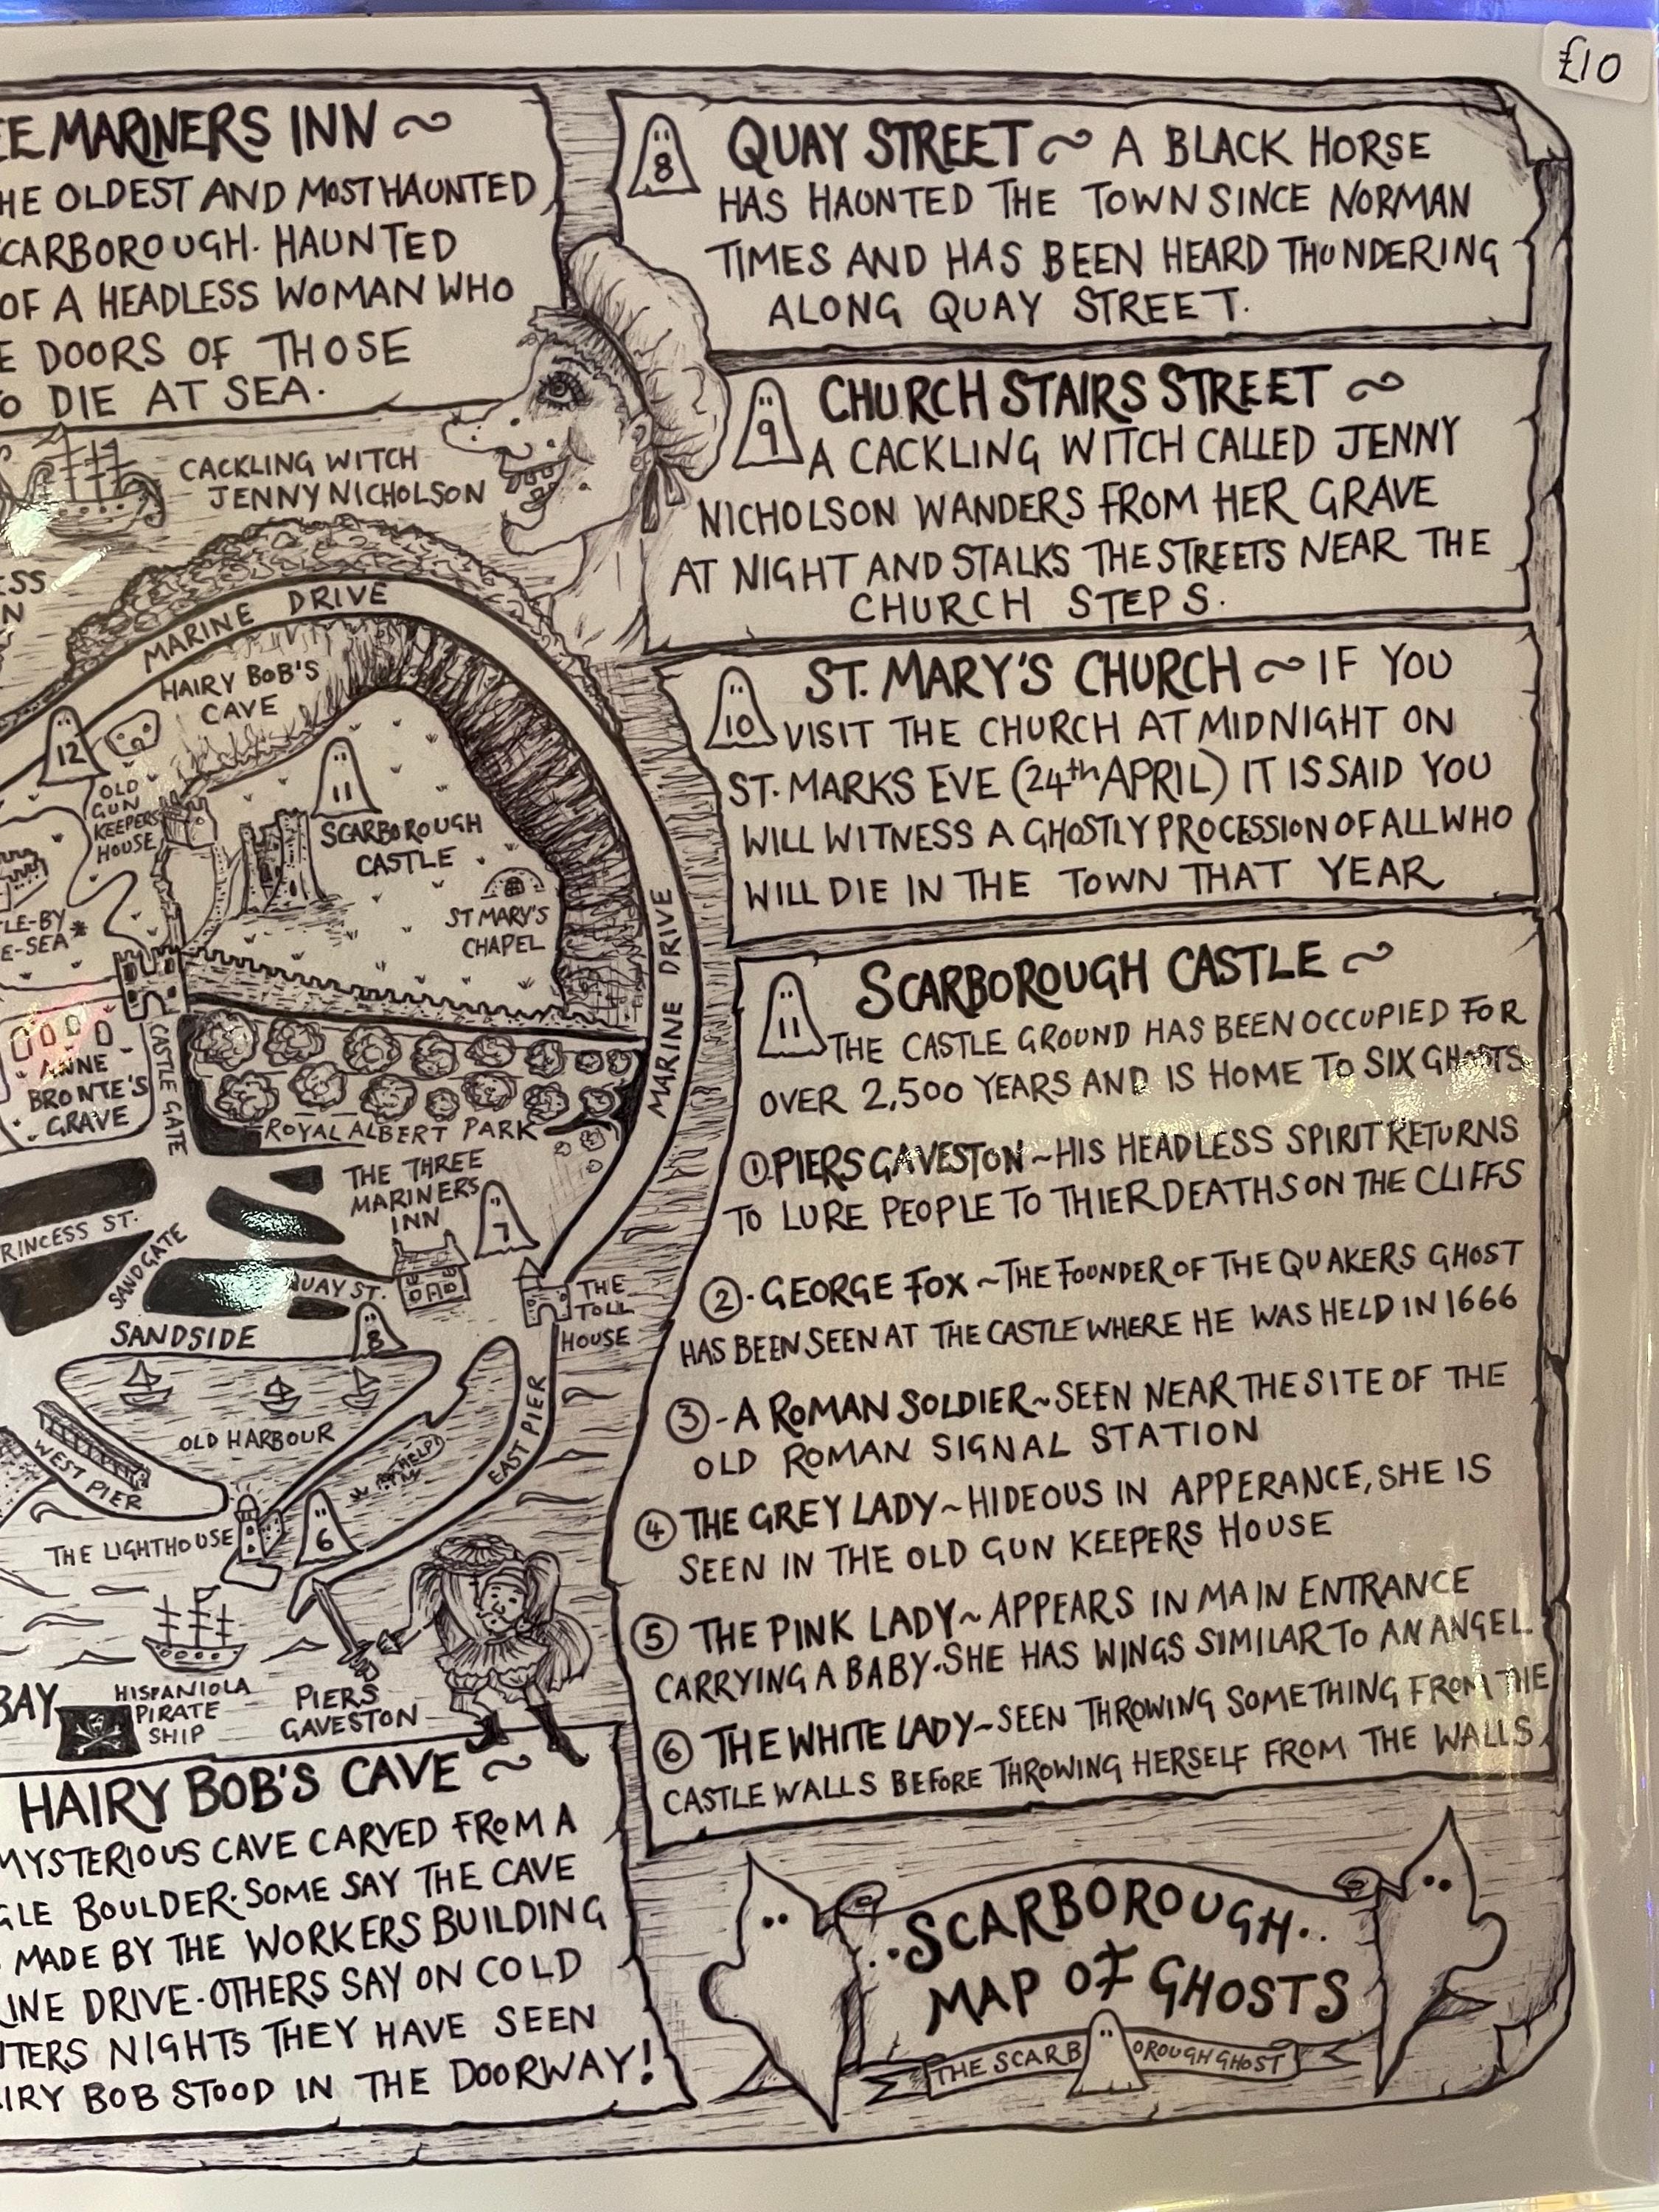 £10
EE MARINERS INN ~
HE OLDEST AND MOST HAUNTED
SCARBOROUGH. HAUNTED
OF A HEADLESS WOMAN WHO
E DOORS OF THOSE
O DIE AT SEA.
8
QUAY STREET ~ A BLACK HORSE
HAS HAUNTED THE TOWN SINCE NORMAN
TIMES AND HAS BEEN HEARD THUNDERING
ALONG QUAY STREET.
9
CHURCH STAIRS STREET ~
A CACKLING WITCH CALLED JENNY
NICHOLSON WANDERS FROM HER GRAVE
AT NIGHT AND STALKS THE STREETS NEAR THE
CHURCH STEPS.
10
ST. MARY'S CHURCH ~ IF YOU
VISIT THE CHURCH AT MIDNIGHT ON
ST. MARKS EVE (24th APRIL) IT IS SAID YOU
WILL WITNESS A GHOSTLY PROCESSION OF ALL WHO
WILL DIE IN THE TOWN THAT YEAR
11
SCARBOROUGH CASTLE ~
THE CASTLE GROUND HAS BEEN OCCUPIED FOR
OVER 2,500 YEARS AND IS HOME TO SIX GHOSTS
① PIERS GAVESTON ~ HIS HEADLESS SPIRIT RETURNS
TO LURE PEOPLE TO THIER DEATHS ON THE CLIFFS
②-GEORGE FOX ~ THE FOUNDER OF THE QUAKERS GHOST
HAS BEEN SEEN AT THE CASTLE WHERE HE WAS HELD IN 1666
③-A ROMAN SOLDIER ~ SEEN NEAR THE SITE OF THE
OLD ROMAN SIGNAL STATION
④ THE GREY LADY ~ HIDEOUS IN APPERANCE, SHE IS
SEEN IN THE OLD GUN KEEPERS HOUSE
⑤ THE PINK LADY ~ APPEARS IN MAIN ENTRANCE
CARRYING A BABY. SHE HAS WINGS SIMILAR TO AN ANGEL
⑥ THE WHITE LADY ~ SEEN THROWING SOMETHING FROM THE
CASTLE WALLS BEFORE THROWING HERSELF FROM THE WALLS
CACKLING WITCH
JENNY NICHOLSON
ESS
N
MARINE DRIVE
HAIRY BOB'S
CAVE
12
OLD
GUN
KEEPERS
HOUSE
11
SCARBOROUGH
CASTLE
ST MARY'S
CHAPEL
TLE-BY
E-SEA*
MARINE DRIVE
ANNE
BRONTE'S
GRAVE
CASTLE GATE
ROYAL ALBERT PARK
THE THREE
MARINERS
INN
7
PRINCESS ST.
SANDGATE
QUAY ST.
THE
TOLL
HOUSE
SANDSIDE
8
OLD HARBOUR
WEST PIER
EAST PIER
HELP!
THE LIGHTHOUSE
6
BAY
HISPANIOLA
PIRATE
SHIP
PIERS
GAVESTON
HAIRY BOB'S CAVE ~
MYSTERIOUS CAVE CARVED FROM A
GLE BOULDER. SOME SAY THE CAVE
MADE BY THE WORKERS BUILDING
INE DRIVE. OTHERS SAY ON COLD
TERS NIGHTS THEY HAVE SEEN
IRY BOB STOOD IN THE DOORWAY!
.SCARBOROUGH..
MAP OF GHOSTS
THE SCARBOROUGH GHOST